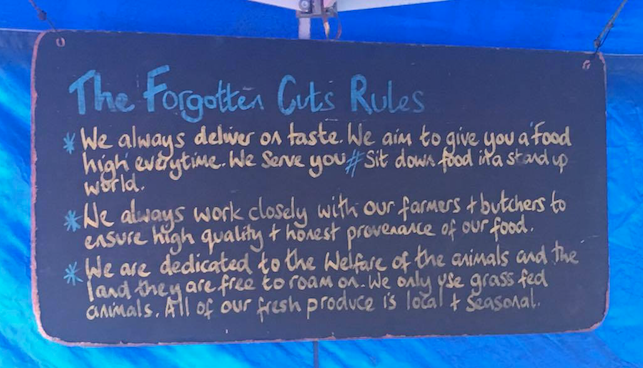 The Forgotten Cuts Rules
* We always deliver on taste. We aim to give you a 'Food
high' everytime. We Serve you # Sit down food in a stand up
world.
* We always work closely with our farmers + butchers to
ensure high quality + honest provenance of our food.
* We are dedicated to the Welfare of the animals and the
land they are free to roam on. We only use grass fed
animals. All of our fresh produce is local + Seasonal.